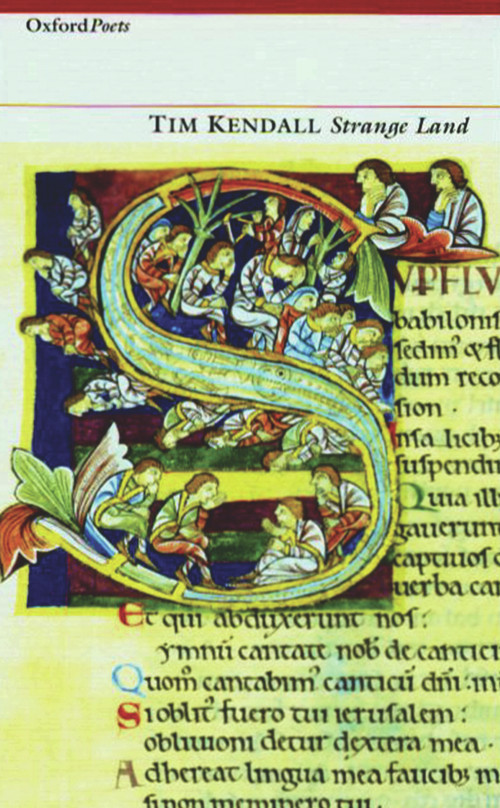 OxfordPoets
TIM KENDALL Strange Land
SVP FLV
babiloniſ
ſedim' & fl
dum reco
ſion ·
nſa licib;
ſuſpendi
Quia ill
gauerun
captiuoſ c
uerba can
Et qui abduxerunt noſ:
ymnū cantate nob̄ de cantici
Quom̄ cantabim' canticū dn̄i: in
Si oblit' fuero tui ieruſalem:
obliuioni detur dextera mea ·
Adhereat lingua mea faucib; m
ſi non meminero tui.